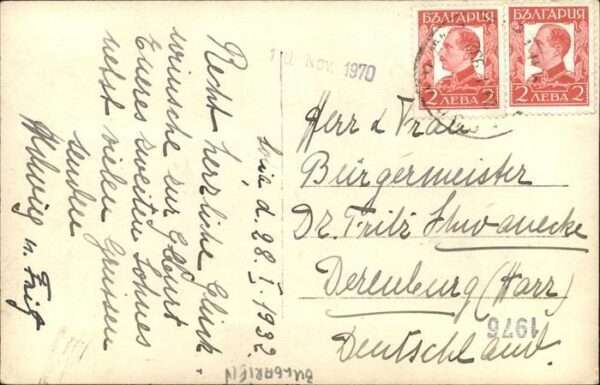 БЪЛГАРИЯ
2 ЛЕВА 2
БЪЛГАРИЯ
2 ЛЕВА 2
1 Nov. 1970
d. 28. I. 1932.
Recht herrliche Glück-
wünsche zur Geburt
Eures zweiten Sohnes
nebst vielen Grüssen
senden
Hedwig u. Fritz
Herr & Frau
Bürgermeister
Dr. Fritz Schwanecke
Derenburg (Harz)
Deutschland.
1976
BULGARIEN